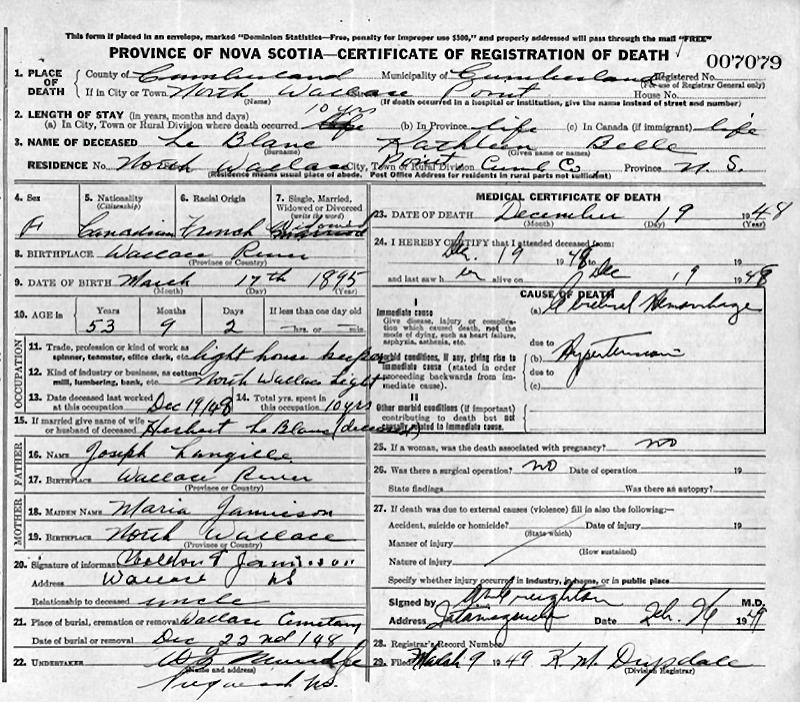 This form if placed in an envelope, marked "Dominion Statistics—Free, penalty for improper use $300," and properly addressed will pass through the mail "FREE"
PROVINCE OF NOVA SCOTIA—CERTIFICATE OF REGISTRATION OF DEATH
007079
1. PLACE OF DEATH County of Cumberland Municipality of Cumberland Registered No.
(For use of Registrar General only)
If in City or Town North Wallace Point House No.
(Name) (If death occurred in a hospital or institution, give the name instead of street and number)
2. LENGTH OF STAY (in years, months and days) 10 yrs
(a) In City, Town or Rural Division where death occurred (b) In Province life (c) In Canada (if immigrant) life
3. NAME OF DECEASED Le Blanc Kathleen Belle
(Surname) (Given name or names)
RESIDENCE No. North Wallace Point City, Town or Rural Division Cumb Co Province N. S.
(Residence means usual place of abode. Post Office Address for residents in rural parts not sufficient)
4. Sex 5. Nationality (Citizenship) 6. Racial Origin 7. Single, Married, Widowed or Divorced (write the word)
F Canadian French Widowed
8. BIRTHPLACE Wallace River
(Province or Country)
9. DATE OF BIRTH March 17th 1895
(Month) (Day) (Year)
10. AGE in Years Months Days If less than one day old
53 9 2 hrs. or min.
OCCUPATION
11. Trade, profession or kind of work as spinner, teamster, office clerk, etc. light house keeper
12. Kind of industry or business, as cotton mill, lumbering, bank, etc. North Wallace Light
13. Date deceased last worked at this occupation Dec 19/48 14. Total yrs. spent in this occupation 10 yrs
15. If married give name of wife or husband of deceased Herbert Le Blanc (deceased)
FATHER
16. NAME Joseph Langille
17. BIRTHPLACE Wallace River
(Province or Country)
MOTHER
18. MAIDEN NAME Maria Jamieson
19. BIRTHPLACE North Wallace
(Province or Country)
20. Signature of informant
Address Wallace NS
Relationship to deceased uncle
21. Place of burial, cremation or removal Wallace Cemetary
Date of burial or removal Dec 22nd /48
22. UNDERTAKER
(Name and address)
MEDICAL CERTIFICATE OF DEATH
23. DATE OF DEATH December 19 1948
(Month) (Day) (Year)
24. I HEREBY CERTIFY that I attended deceased from:
Dec. 19 1948 to Dec 19 1948
and last saw h er alive on
CAUSE OF DEATH
I
Immediate cause
Give disease, injury or complication which caused death, not the mode of dying, such as heart failure, asphyxia, asthenia, etc.
(a) Cerebral Hemorrhage
due to
Morbid conditions, if any, giving rise to immediate cause (stated in order proceeding backwards from immediate cause).
(b) Hypertension
due to
(c)
II
Other morbid conditions (if important) contributing to death but not causally related to immediate cause.
25. If a woman, was the death associated with pregnancy? no
26. Was there a surgical operation? no Date of operation 19
State findings Was there an autopsy?
27. If death was due to external causes (violence) fill in also the following:—
Accident, suicide or homicide? Date of injury 19
(State which)
Manner of injury
(How sustained)
Nature of injury
Specify whether injury occurred in industry, in home, or in public place
Signed by Creighton M.D.
Address Tatamagouche Date Feb. 26 1949
28. Registrar's Record Number
29. Filed March 9 1949 K. M. Drysdale
(Division Registrar)